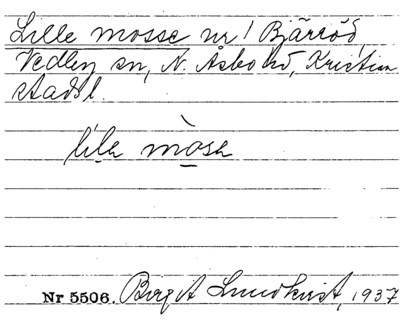 Lille mosse nr 1 Bjärröd
Vedby sn, N. Åsbo hd, Kristian
stads l.
lilɘ mosɘ
Nr 5506. Birgit Lundkvist, 1937